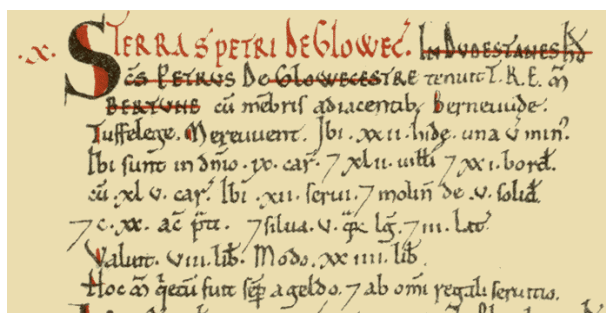 .X. TERRA S PETRI DE GLOWEC̄. IN DVDESTANES HD̄
SC̄S PETRVS DE GLOWECESTRE tenuit T.R.E. M̄
BERTVNE cū mēbris adiacentib; Berneuude.
Tuffelege. Mereuuent. Ibi .xxii. hide. una v̄ min⁹.
Ibi sunt in dn̄io .ix. car̄. 7 xlii. uilli 7 xxi. bord̄.
cū .xlv. car̄. Ibi .xii. serui. 7 molin̄ de .v. solid̄.
7 c.xx. ac̄ p̄ti. 7 silua .v. q̄rȝ lḡ. 7 iii. lat̄.
Valuit .viii. lib̄. Modo .xxiiii. lib̄.
Hoc M̄ q̄etū fuit sēp a geldo. 7 ab omi regali seruitio.